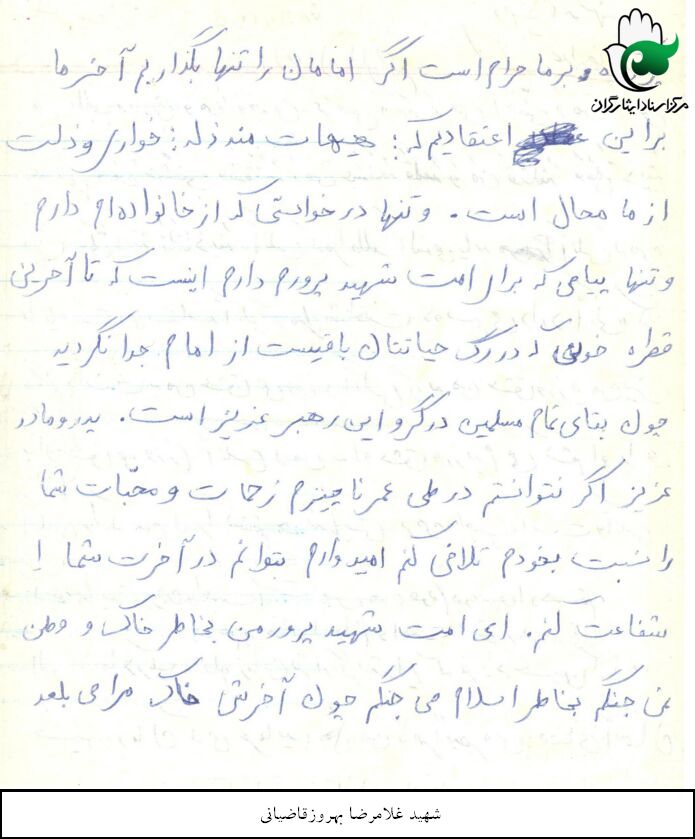 و بر ما حرام است اگر اماممان را تنها بگذاریم آخر ما
مرکز اسناد ایثارگران
بر این اعتقادیم که: هیهات منه ذله: خواری و ذلت
از ما محال است. و تنها درخواستی که از خانواده‌ام دارم
و تنها پیامی که برای امت شهید پرورم دارم اینست که تا آخرین
قطره خونی که در رگ حیاتتان باقیست از امام جدا نگردید
چون بقای تمام مسلمین در گرو این رهبر عزیز است. پدر و مادر
عزیز اگر نتوانستم در طی عمر ناچیزم زحمات و محبّات شما
را نسبت بخودم تلافی کنم امیدوارم بتوانم در آخرت شما را
شفاعت کنم. ای امت شهید پرور من بخاطر خاک و وطن
نمی جنگم بخاطر اسلام می جنگم چون آخرش خاک مرا می بلعد
شهید غلامرضا بهروزقاضیانی